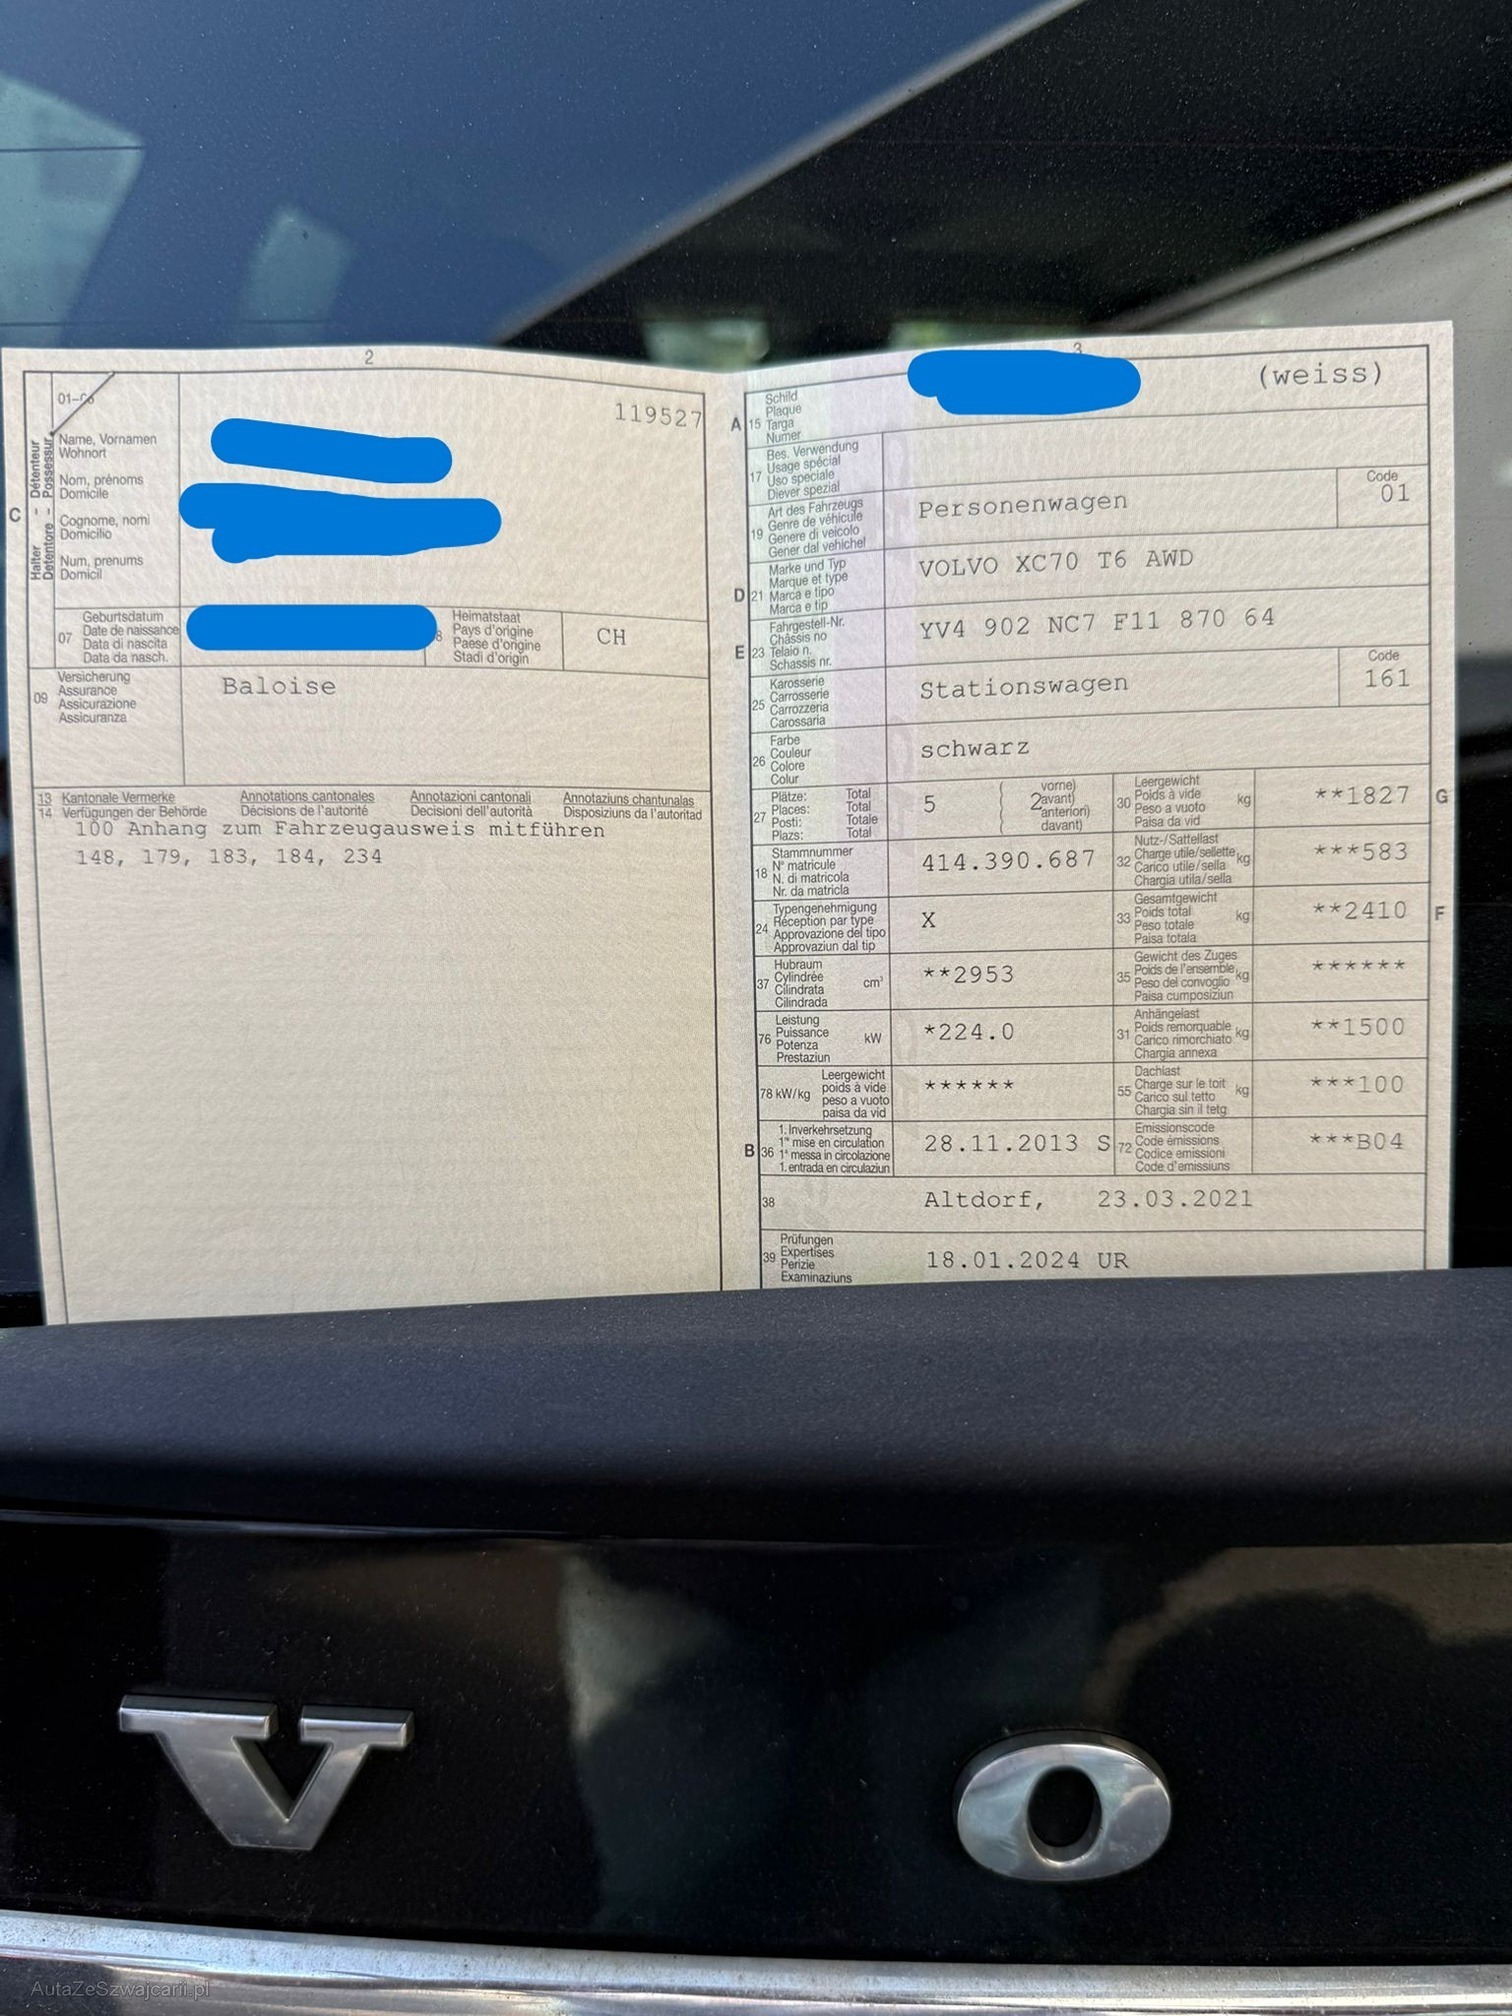 2
01-06
119527
C
Halter - Détenteur
Detentore - Possessur
Name, Vornamen
Wohnort
Nom, prénoms
Domicile
Cognome, nomi
Domicilio
Num, prenums
Domicil
07
Geburtsdatum
Date de naissance
Data di nascita
Data da nasch.
8
Heimatstaat
Pays d'origine
Paese d'origine
Stadi d'origin
CH
09
Versicherung
Assurance
Assicurazione
Assicuranza
Baloise
13 Kantonale Vermerke Annotations cantonales Annotazioni cantonali Annotaziuns chantunalas
14 Verfügungen der Behörde Décisions de l'autorité Decisioni dell'autorità Disposiziuns da l'autoritad
100 Anhang zum Fahrzeugausweis mitführen
148, 179, 183, 184, 234
3
A 15
Schild
Plaque
Targa
Numer
(weiss)
17
Bes. Verwendung
Usage spécial
Uso speciale
Diever spezial
19
Art des Fahrzeugs
Genre de véhicule
Genere di veicolo
Gener dal vehichel
Personenwagen
Code
01
D 21
Marke und Typ
Marque et type
Marca e tipo
Marca e tip
VOLVO XC70 T6 AWD
E 23
Fahrgestell-Nr.
Châssis no
Telaio n.
Schassis nr.
YV4 902 NC7 F11 870 64
25
Karosserie
Carrosserie
Carrozzeria
Carossaria
Stationswagen
Code
161
26
Farbe
Couleur
Colore
Colur
schwarz
27
Plätze: Total
Places: Total
Posti: Totale
Plazs: Total
5
2
vorne)
avant)
anteriori)
davant)
30
Leergewicht
Poids à vide
Peso a vuoto
Paisa da vid
kg
**1827
G
18
Stammnummer
N° matricule
N. di matricola
Nr. da matricla
414.390.687
32
Nutz-/Sattellast
Charge utile/sellette
Carico utile/sella
Chargia utila/sella
kg
***583
24
Typengenehmigung
Réception par type
Approvazione del tipo
Approvaziun dal tip
X
33
Gesamtgewicht
Poids total
Peso totale
Paisa totala
kg
**2410
F
37
Hubraum
Cylindrée
Cilindrata
Cilindrada
cm³
**2953
35
Gewicht des Zuges
Poids de l'ensemble
Peso del convoglio
Paisa cumposiziun
kg
******
76
Leistung
Puissance
Potenza
Prestaziun
kW
*224.0
31
Anhängelast
Poids remorquable
Carico rimorchiato
Chargia annexa
kg
**1500
78 kW/kg
Leergewicht
poids à vide
peso a vuoto
paisa da vid
******
55
Dachlast
Charge sur le toit
Carico sul tetto
Chargia sin il tetg
kg
***100
B 36
1. Inverkehrsetzung
1re mise en circulation
1a messa in circolazione
1. entrada en circulaziun
28.11.2013 S
72
Emissionscode
Code émissions
Codice emissioni
Code d'emissiuns
***B04
38
Altdorf, 23.03.2021
39
Prüfungen
Expertises
Perizie
Examinaziuns
18.01.2024 UR
V O
AutaZeSzwajcarii.pl